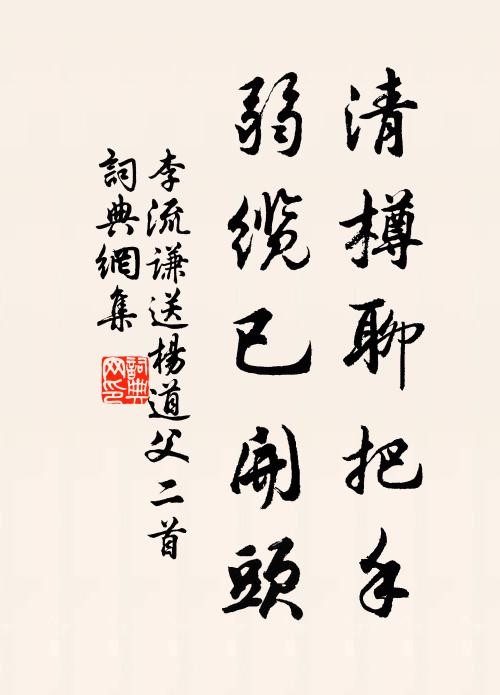 清樽聊把手
弱缆已開頭
李流谦送楊道父二首
詞典網集
詞典
网印